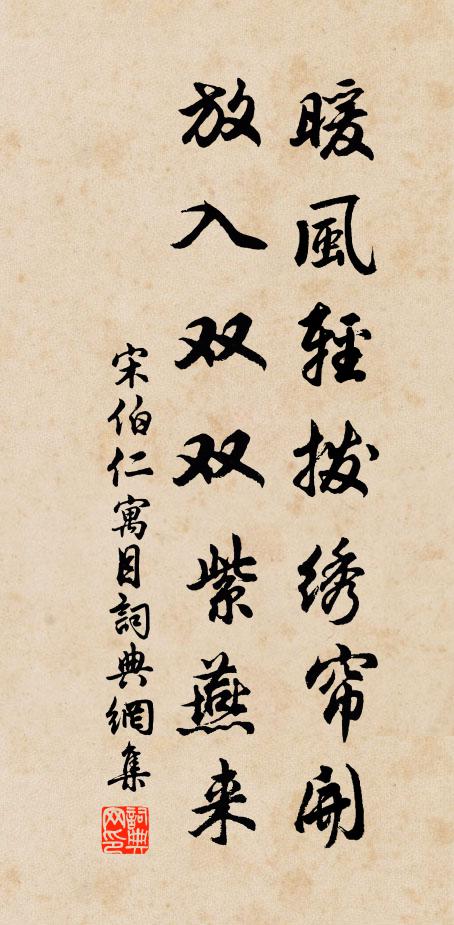 暖風輕拨绣帘開
放入双双紫燕来
宋伯仁寓目詞典網集
詞典网印